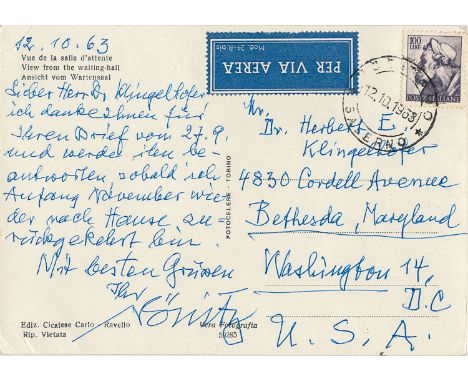 12.10.63
Vue de la salle d'attente
View from the waiting-hall
Ansicht vom Wartensaal
Lieber Herr Dr Klingelhöfer
ich danke Ihnen für
Ihren Brief vom 27.9.
und werde ihn be-
antworten sobald ich
Anfang November wie
der nach Hause zu-
rückgekehrt bin.
Mit besten Grüssen
Ihr
Ediz. Cicalese Carlo - Ravello
Rip. Vietata
FOTOCELERE - TORINO
Vera Fotografia
PER VIA AEREA
Mod. 24-R-bis
12.10.1963
SALERNO
100
LIRE
POSTE ITALIANE
Dr. Herbert E.
Klingelhofer
4830 Cordell Avenue
Bethesda, Maryland
Washington 14,
D.C
U. S. A.